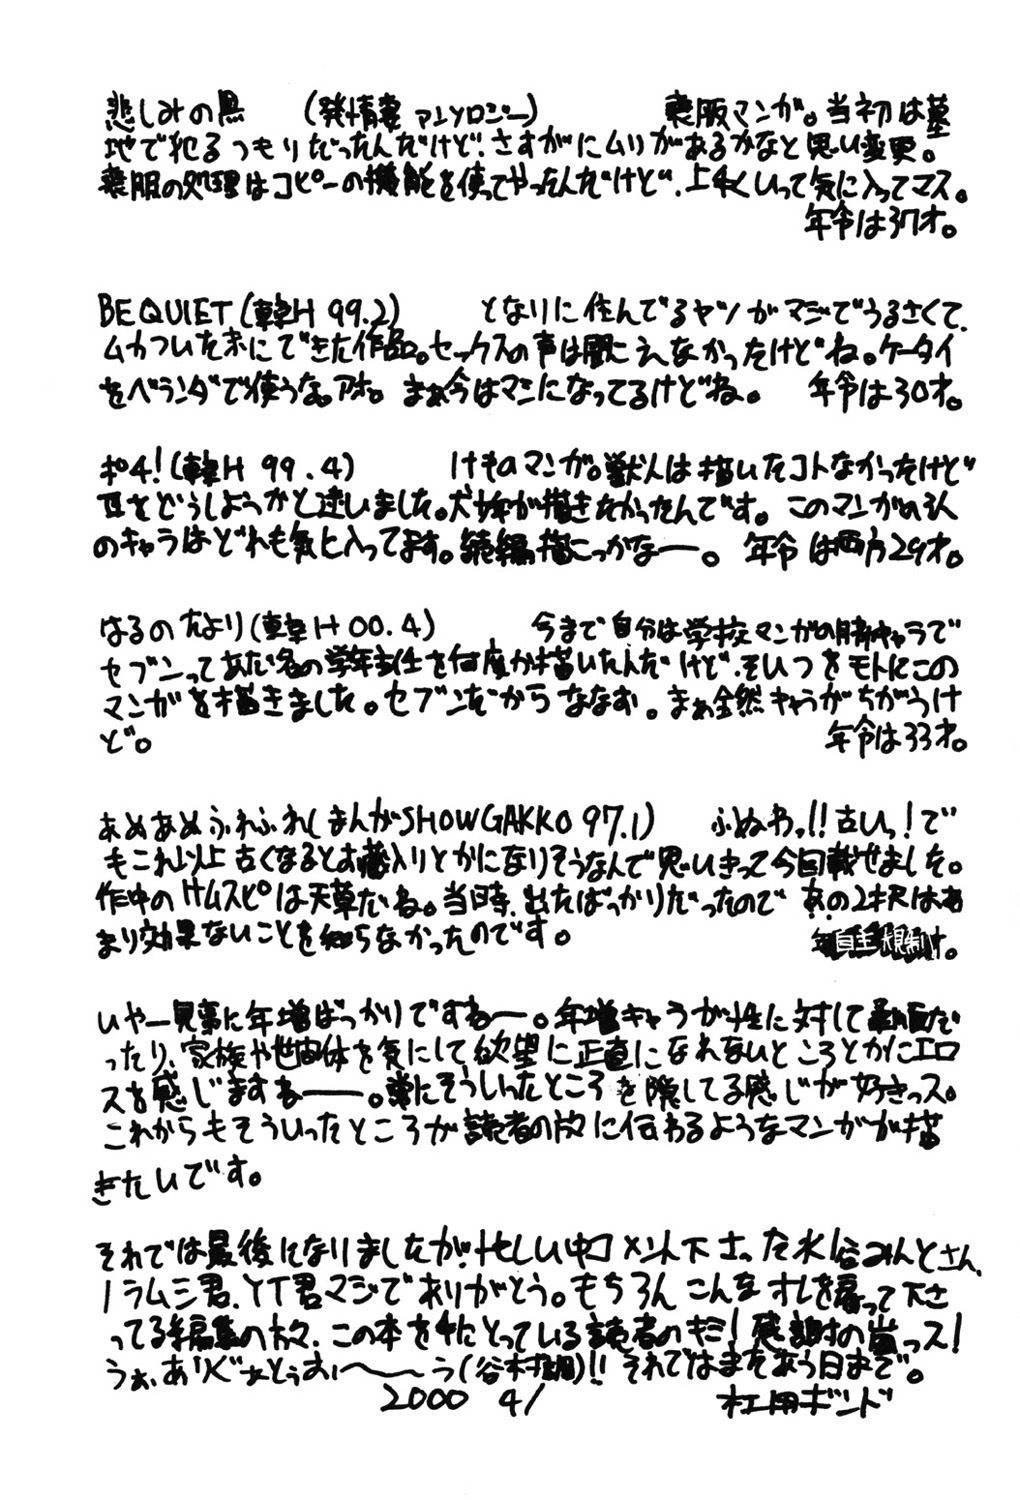 悲しみの黒 (発情妻アンソロジー) 喪服マンガ。当初は墓
地で犯るつもりだったんだけど、さすがにムリがあるかなと思い変更。
喪服の処理はコピーの機能を使ってやったんだけど、上手くいって気に入ってマス。
年令は37才。
BE QUIET (韓H 99.2) となりに住んでるヤツがマジでうるさくて、
ムカついた末にできた作品。セックスの声は聞こえなかったけどね。ケータイ
をベランダで使うな。アホ。まぁ今はマシになってるけどね。 年令は30才。
ポチ! (韓H 99.4) けものマンガ。獣人は描いたコトなかったけど
耳をどうしようかと迷いました。犬が描きたかったんです。このマンガの3人
のキャラはどれも気に入ってます。続編描こっかなー。 年令は両方29才。
はるのたより (韓H 00.4) 今まで自分は学校マンガの脇キャラで
セブンってあだ名の学年主任を何度か描いたんだけど、そいつをモトにこの
マンガを描きました。セブンだからななお。まぁ全然キャラがちがうけ
ど。 年令は33才。
あめあめふれふれ (まんがSHOWGAKKO 97.1) ふぬわっ!!古いっ!で
もこれ以上古くなるとお蔵入りとかになりそうなんで思いきって今回載せました。
作中のサムスピは天草だね。当時、出たばっかりだったので あの2択はあ
まり効果ないことを知らなかったのです。 年自主規制才。
いやー見事に年増ばっかりですねー。年増キャラが性に対して
ったり、家族や世間体を気にして欲望に正直になれないところとかにエロ
スを感じますねー。常にそういったところを隠してる感じが好きっス。
これからもそういったところが読者の方に伝わるようなマンガが描
きたいです。
それでは最後になりましたが、忙しい中コメント下さった水谷みんとさん、
ノラムシ君、YT君マジでありがとう。もちろんこんなオレを雇って下さ
ってる編集の方々、この本を手にとっている読者のキミ!感謝の嵐っス!
うぉ、ありぐぁとぅおぉ〜〜う(谷村調)!!それではまたあう日まで。
2000 4/ 杜用ボンド